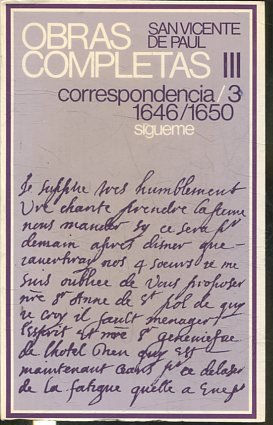 OBRAS
COMPLETAS III
SAN VICENTE
DE PAUL
correspondencia/3
1646/1650
sígueme
Je supplie tres humblement
Vre charite prendre la peine
nous mander sy ce sera pr
demain apres disner que
nos 4 soeurs je me
suis oubliee de Vous proposer
nre Sr Anne de St pol de quy
je croy il fault menager
l'esprit et nre Sr geneviefve
de lhotel Dieu quy est
maintenant ceans pr ce delaser
de la fatigue quelle a